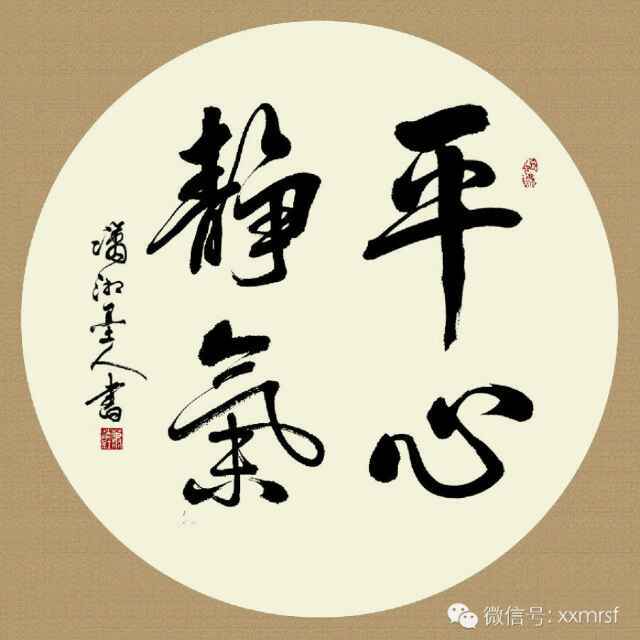 平心
靜氣
瀟湘墨人書
微信号: xxmrsf